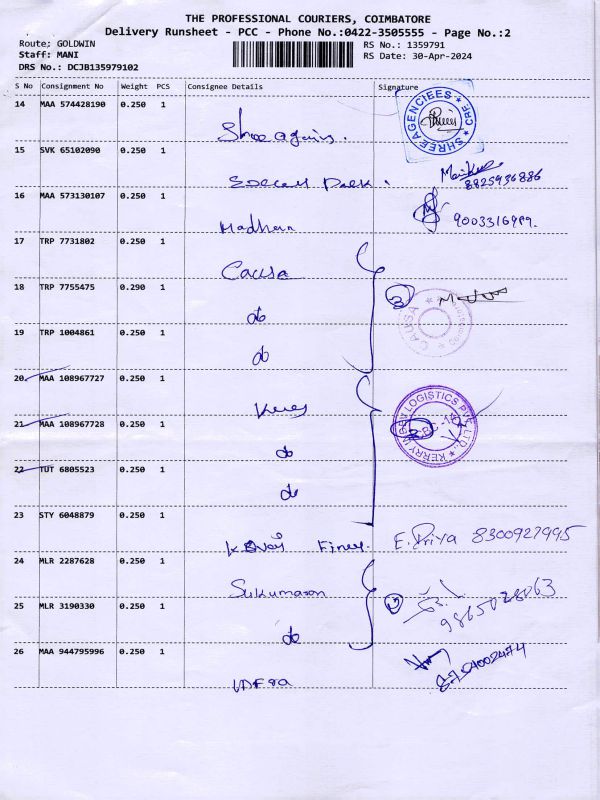 THE PROFESSIONAL COURIERS, COIMBATORE
Delivery Runsheet - PCC - Phone No.:0422-3505555 - Page No.:2
Route: GOLDWIN
RS No.: 1359791
Staff: MANI
RS Date: 30-Apr-2024
DRS No.: DCJB135979102
S No Consignment No Weight PCS Consignee Details Signature
14 MAA 574428190 0.250 1
SHREE AGENCIEES ★ CBE ★
Shree
15 SVK 65102090 0.250 1
8825936886
16 MAA 573130107 0.250 1
9003316989.
Madhan
17 TRP 7731802 0.250 1
Causa
18 TRP 7755475 0.290 1
do
3
CAUSA
19 TRP 1004861 0.250 1
do
20 MAA 108967727 0.250 1
Kerry
KERRY INDEV LOGISTICS PVT. LTD.
21 MAA 108967728 0.250 1
do
22 TUT 6805523 0.250 1
do
23 STY 6048879 0.250 1
E. Priya 8300927995
24 MLR 2287628 0.250 1
Sukumaran
9865028063
25 MLR 3190330 0.250 1
do
26 MAA 944795996 0.250 1
8754002474